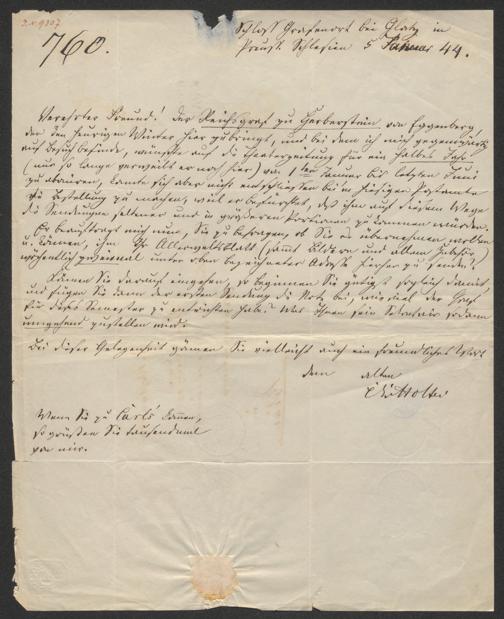 760.
Schloss Grafenort bei Glatz in
Preuß. Schlesien 5 Januar 44.
Verehrter Freund! Der Reichsgraf zu Herberstein von Eggenberg,
der den heurigen Winter hier zubringt, und bei dem ich mich gegenwärtig
auf Besuch befinde, wünschte auf die Theaterzeitung für ein halbes Jahr
(nur so lange verweilt er noch hier) von 1ten Januar bis letzten Juni
zu abonniren, konnte sich aber nicht entschließen beim hiesigen Postamte
die Bestellung zu machen, weil er befürchtet, daß ihm auf diesem Wege
die Sendungen seltener und in größeren Portionen zukommen würden.
Er beauftragt mich nun, Sie zu befragen, ob Sie es übernehmen wollen
u. können, ihm Ihr Allerweltsblatt (sammt Bildern und allem Zubehör)
wöchentlich zweimal unter oben bezeichneter Adresse hierher zu senden?
Können Sie darauf eingehen, so beginnen Sie gütigst sogleich damit,
und fügen Sie dann der ersten Sendung die Notiz bei, wieviel der Graf
für dieses Semester zu entrichten habe? Was Ihnen sein Sekretair sodann
umgehend zustellen wird.
Bei dieser Gelegenheit gönnen Sie vielleicht auch ein freundliches Wort
dem alten
Holtei
Wenn Sie zu Carls kommen,
so grüßen Sie tausendmal
von mir.